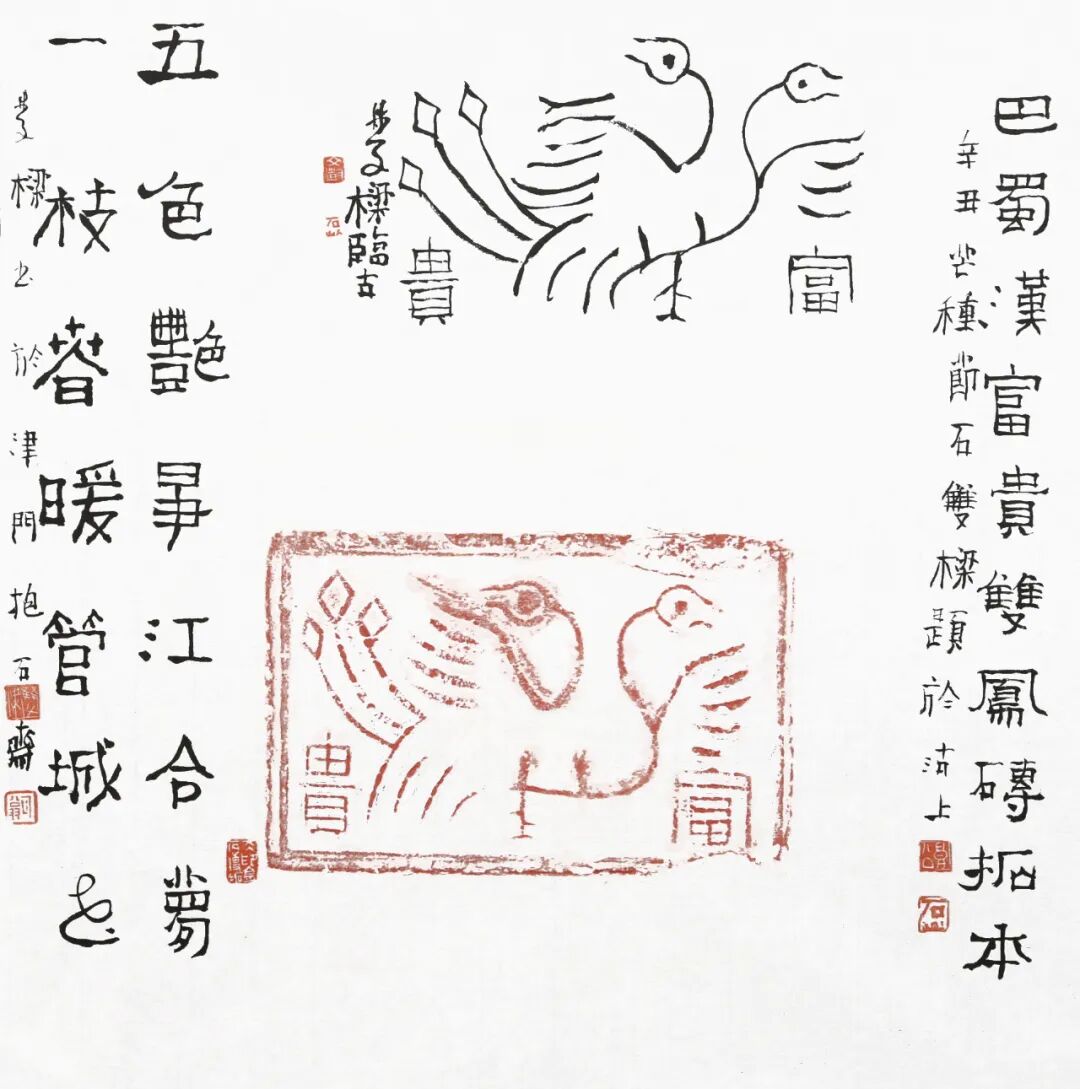 巴蜀漢富貴雙鳳磚拓本
辛丑芒種節石雙樑題於沽上
富
貴
樑臨古
富
貴
五色艷爭江合夢
一枝春暖管城花
樑书於津門抱石齋